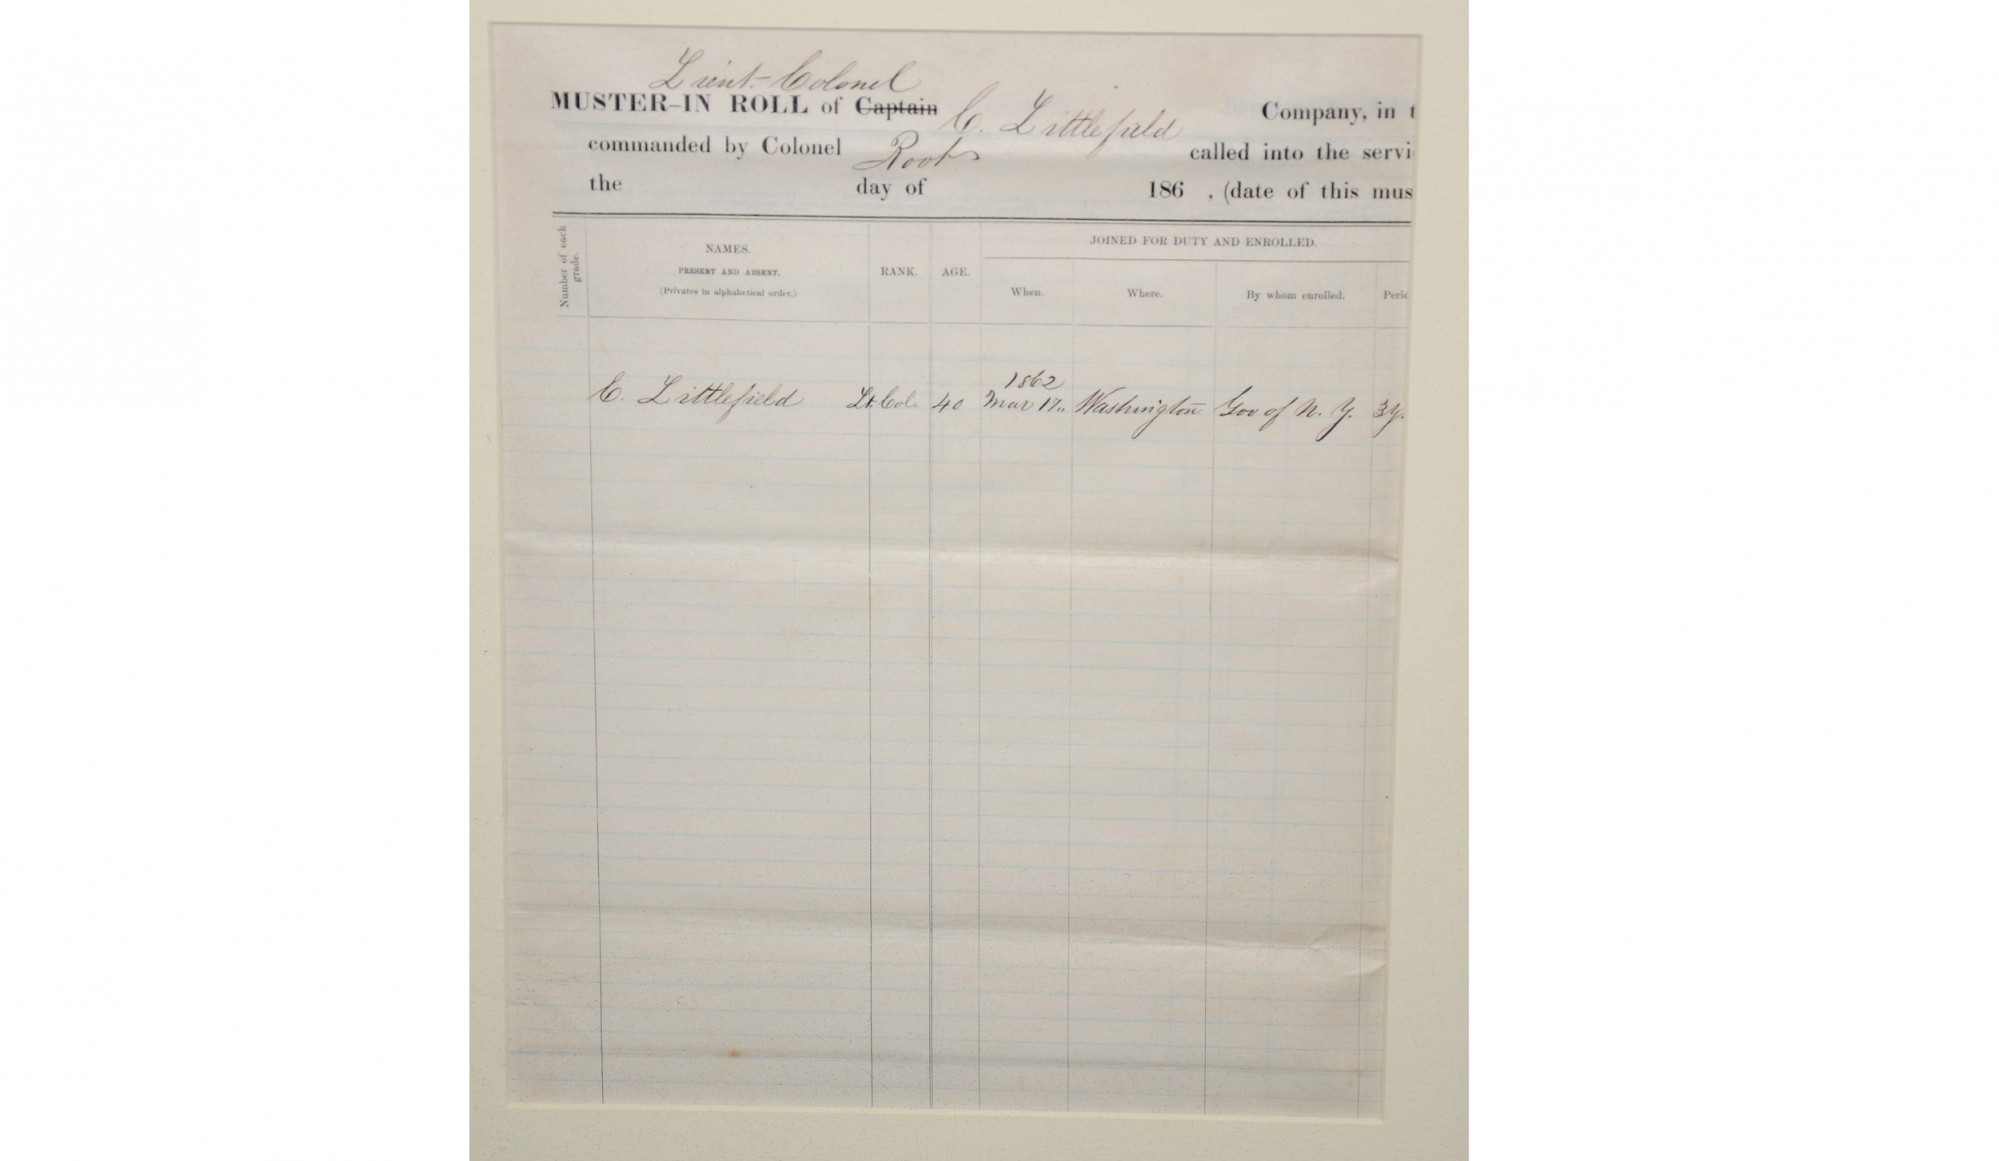 Lieut-Colonel
MUSTER-IN ROLL of Captain C. Littlefield Company, in t
commanded by Colonel Root called into the servi
the day of 186 , (date of this mus
Number of each grade.
NAMES.
PRESENT AND ABSENT.
(Privates in alphabetical order.)
RANK.
AGE.
JOINED FOR DUTY AND ENROLLED.
When.
Where.
By whom enrolled.
Perio
1862
C. Littlefield Lt. Col. 40 Mar 17.. Washington Gov of N. Y. 3 y.